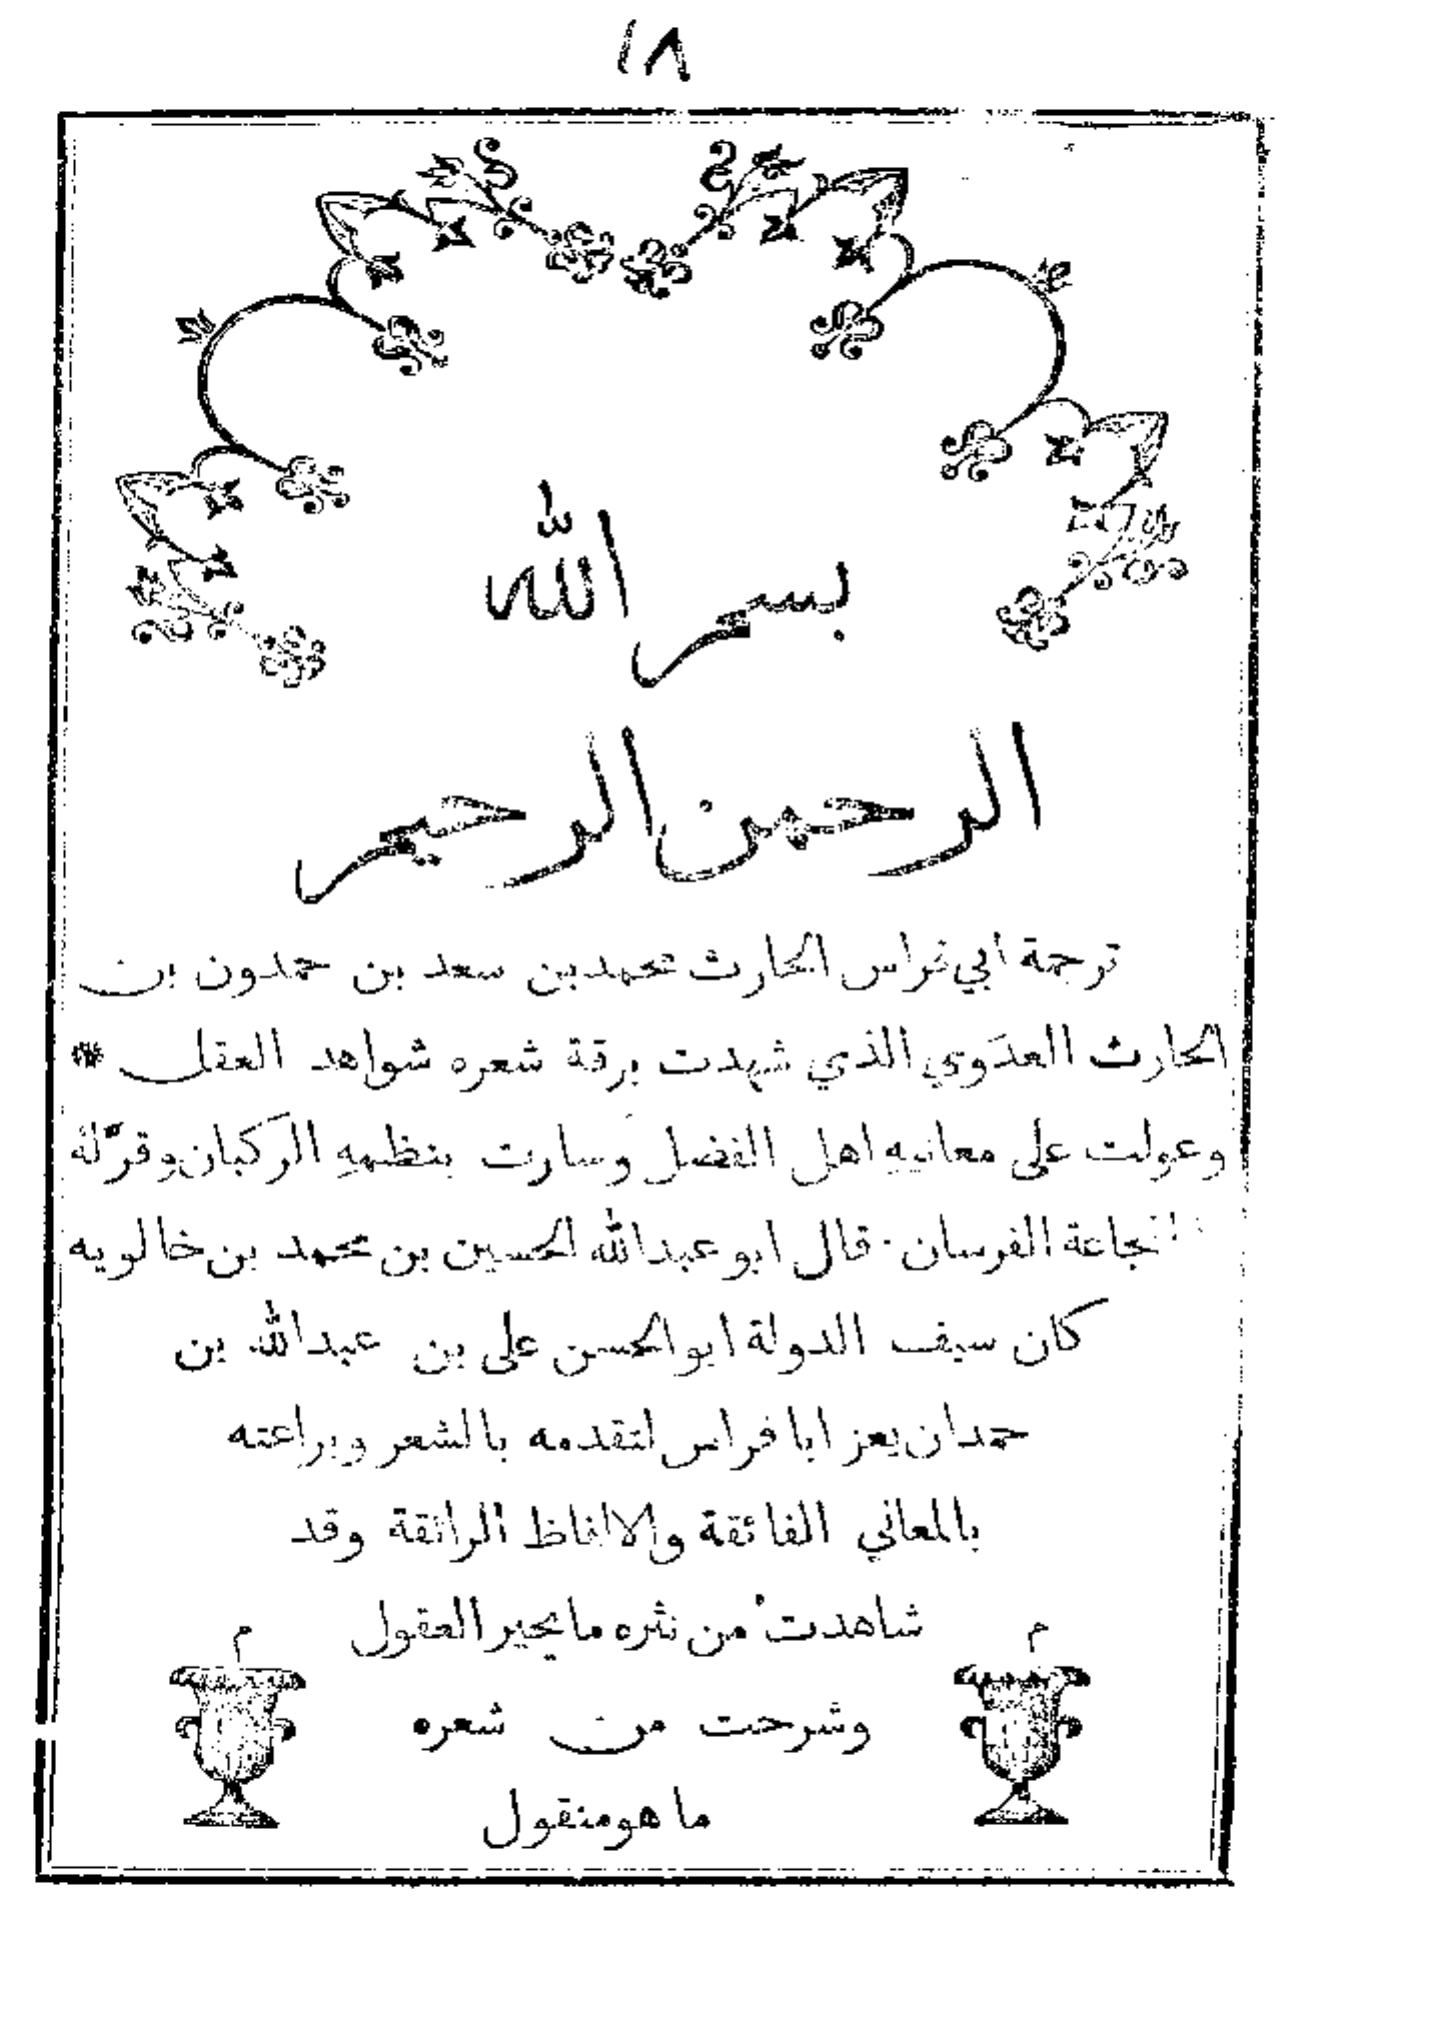 ١٨
بسم الله
الرحمن الرحيم
ترجمة ابي فراس الحارث محمد بن سعد بن حمدون بن
الحارث العدَوي الذي شهدت برقة شعره شواهد العقل *
وعولت على معانيهِ اهل الفضل وسارت بنظمهِ الركبان وقرّ لهُ
الفرسان . قال ابو عبدالله الحسين بن محمد بن خالويه
كان سيف الدولة ابو الحسن على بن عبدالله بن
حمدان يعز ابا فراس لتقدمه بالشعر وبراعته
بالمعاني الفائقة والالفاظ الرائقة وقد
شاهدتْ من نثره ما يحير العقول
م م
وشرحت من شعره
ما هو منقول